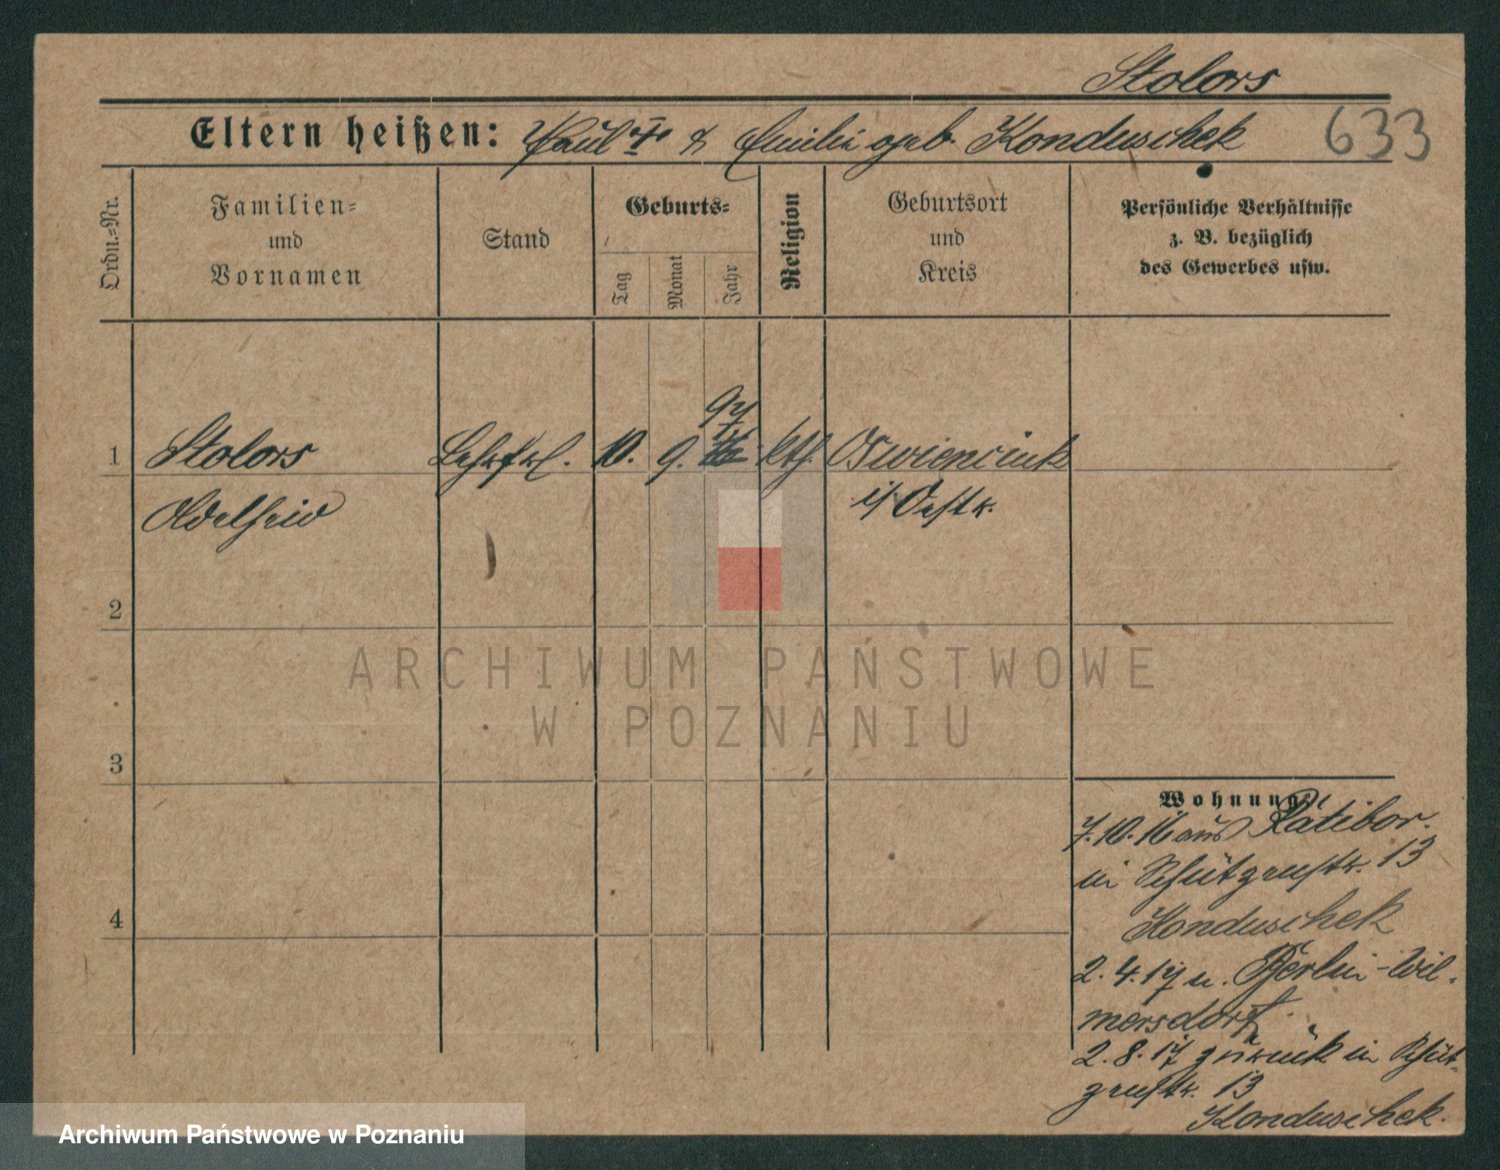 Stolors
Eltern heißen: Paul † & Emilie geb. Konduschek 633
Ordn.=Nr.
Familien=
und
Vornamen
Stand
Geburts=
Tag
Monat
Jahr
Religion
Geburtsort
und
Kreis
Persönliche Verhältnisse
z. B. bezüglich
des Gewerbes usw.
1 Stolors Lehrfrl. 10. 9. 97 kth. Oswiencink
Adelheid i/ Oestr.
2
3
4
Wohnung:
7.10.16 aus Ratibor.
in Schützenstr. 13
Konduschek
2.4.17 n. Berlin-Wil-
mersdorf.
2.8.17 zurück in Schüt-
zenstr. 13
Konduschek.
ARCHIWUM PAŃSTWOWE
W POZNANIU
Archiwum Państwowe w Poznaniu